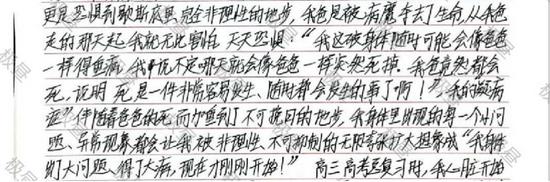 更是恐惧到歇斯底里,完全非理性的地步,我爸是被病魔夺去了生命,从我爸
走的那天起,我就无比害怕,天天恐惧:“我这破身体随时可能会像爸爸
一样得重病,我说不定哪天就会像爸爸一样突然死掉。我爸竟然都会
死,说明死是一件非常容易发生、随时都会发生的事了啊!”我的疑病
症”伴随着爸爸的死而加重到了不可挽回的地步。我身体里出现的每一个小问
题、异常现象都会让我被非理性、不可抑制的无限夸大想象成“我身体
出了大问题、得了大病,现在才刚刚开始!” 高三高考总复习时,我心脏开始
极昼